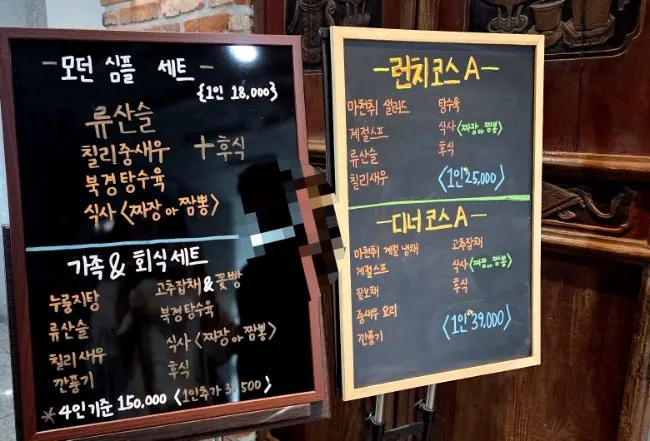 - 모던 심플 세트 -
{1인 18,000}
류산슬
칠리중새우 + 후식
북경탕수육
식사 <짜장 or 짬뽕>
가족 & 회식세트
누룽지탕 고추잡채 & 꽃빵
류산슬 북경탕수육
칠리새우 식사 <짜장 or 짬뽕>
깐풍기 후식
※4인기준 150,000
- 런치코스 A -
마천취 샐러드 탕수육
계절스프 식사 <짜장 or 짬뽕>
류산슬 후식
칠리새우 <1인 25,000>
- 디너코스 A -
마천취 계절 냉채 고추잡채
계절스프 식사 <짜장 or 짬뽕>
팔보채 후식
중새우 요리 <1인 39,000>
깐풍기